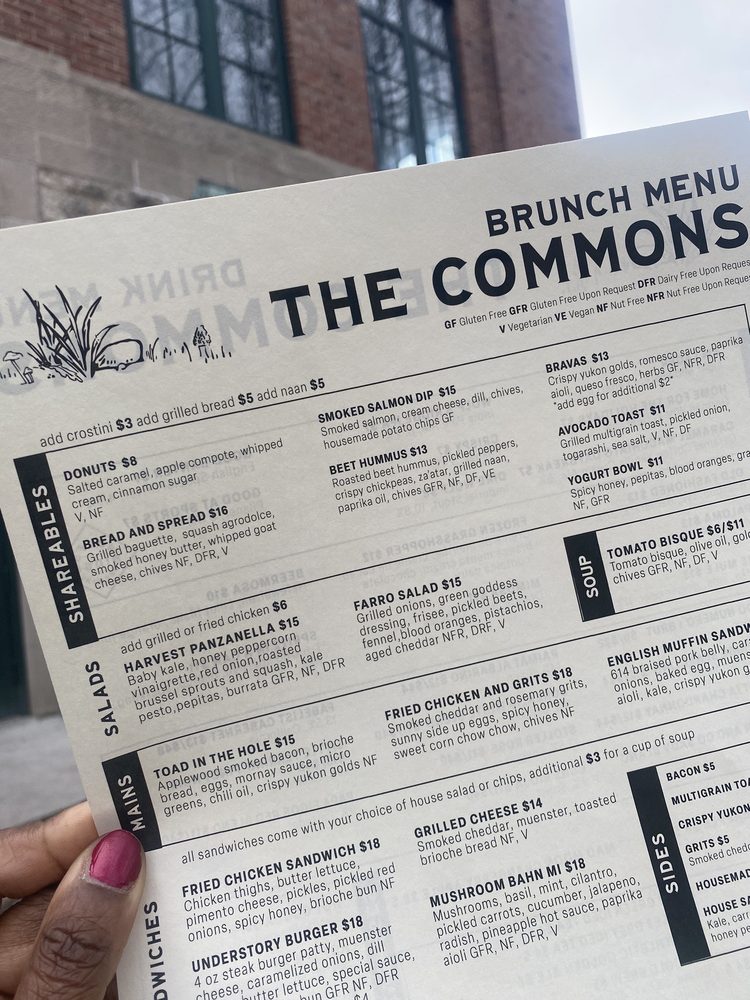 BRUNCH MENU
THE COMMONS
GF Gluten Free GFR Gluten Free Upon Request DFR Dairy Free Upon
V Vegetarian VE Vegan NF Nut Free NFR Nut Free Upon
add crostini $3 add grilled bread $5 add naan $5
SHAREABLES
DONUTS $8
Salted caramel, apple compote, whipped
cream, cinnamon sugar
V, NF
BREAD AND SPREAD $16
Grilled baguette, squash agrodolce,
smoked honey butter, whipped goat
cheese, chives NF, DFR, V
SMOKED SALMON DIP $15
Smoked salmon, cream cheese, dill, chives,
housemade potato chips GF
BEET HUMMUS $13
Roasted beet hummus, pickled peppers,
crispy chickpeas, za'atar, grilled naan,
paprika oil, chives GFR, NF, DF, VE
BRAVAS $13
Crispy yukon golds, romesco sauce, paprika
aioli, queso fresco, herbs GF, NFR, DFR
*add egg for additional $2*
AVOCADO TOAST $11
Grilled multigrain toast, pickled onion,
togarashi, sea salt, V, NF, DF
YOGURT BOWL $11
Spicy honey, pepitas, blood oranges,
NF, GFR
SALADS
add grilled or fried chicken $6
HARVEST PANZANELLA $15
Baby kale, honey peppercorn
vinaigrette,red onion,roasted
brussel sprouts and squash, kale
pesto,pepitas, burrata GFR, NF, DFR
FARRO SALAD $15
Grilled onions, green goddess
dressing, frisee, pickled beets,
fennel,blood oranges, pistachios,
aged cheddar NFR, DRF, V
SOUP
TOMATO BISQUE $6/$11
Tomato bisque, olive oil,
chives GFR, NF, DF, V
MAINS
TOAD IN THE HOLE $15
Applewood smoked bacon, brioche
bread, eggs, mornay sauce, micro
greens, chili oil, crispy yukon golds NF
FRIED CHICKEN AND GRITS $18
Smoked cheddar and rosemary grits,
sunny side up eggs, spicy honey,
sweet corn chow chow, chives NF
ENGLISH MUFFIN
614 braised pork belly,
onions, baked egg,
aioli, kale, crispy yukon
all sandwiches come with your choice of house salad or chips, additional $3 for a cup of soup
DWICHES
FRIED CHICKEN SANDWICH $18
Chicken thighs, butter lettuce,
pimento cheese, pickles, pickled red
onions, spicy honey, brioche bun NF
UNDERSTORY BURGER $18
4 oz steak burger patty, muenster
cheese, caramelized onions, dill
butter lettuce, special sauce,
bun GFR NF, DFR
$4
GRILLED CHEESE $14
Smoked cheddar, muenster, toasted
brioche bread NF, V
MUSHROOM BAHN MI $18
Mushrooms, basil, mint, cilantro,
pickled carrots, cucumber, jalapeno,
radish, pineapple hot sauce, paprika
aioli GFR, NF, DFR, V
SIDES
BACON $5
MULTIGRAIN
CRISPY
GRITS $5
Smoked
HOUSE
honey